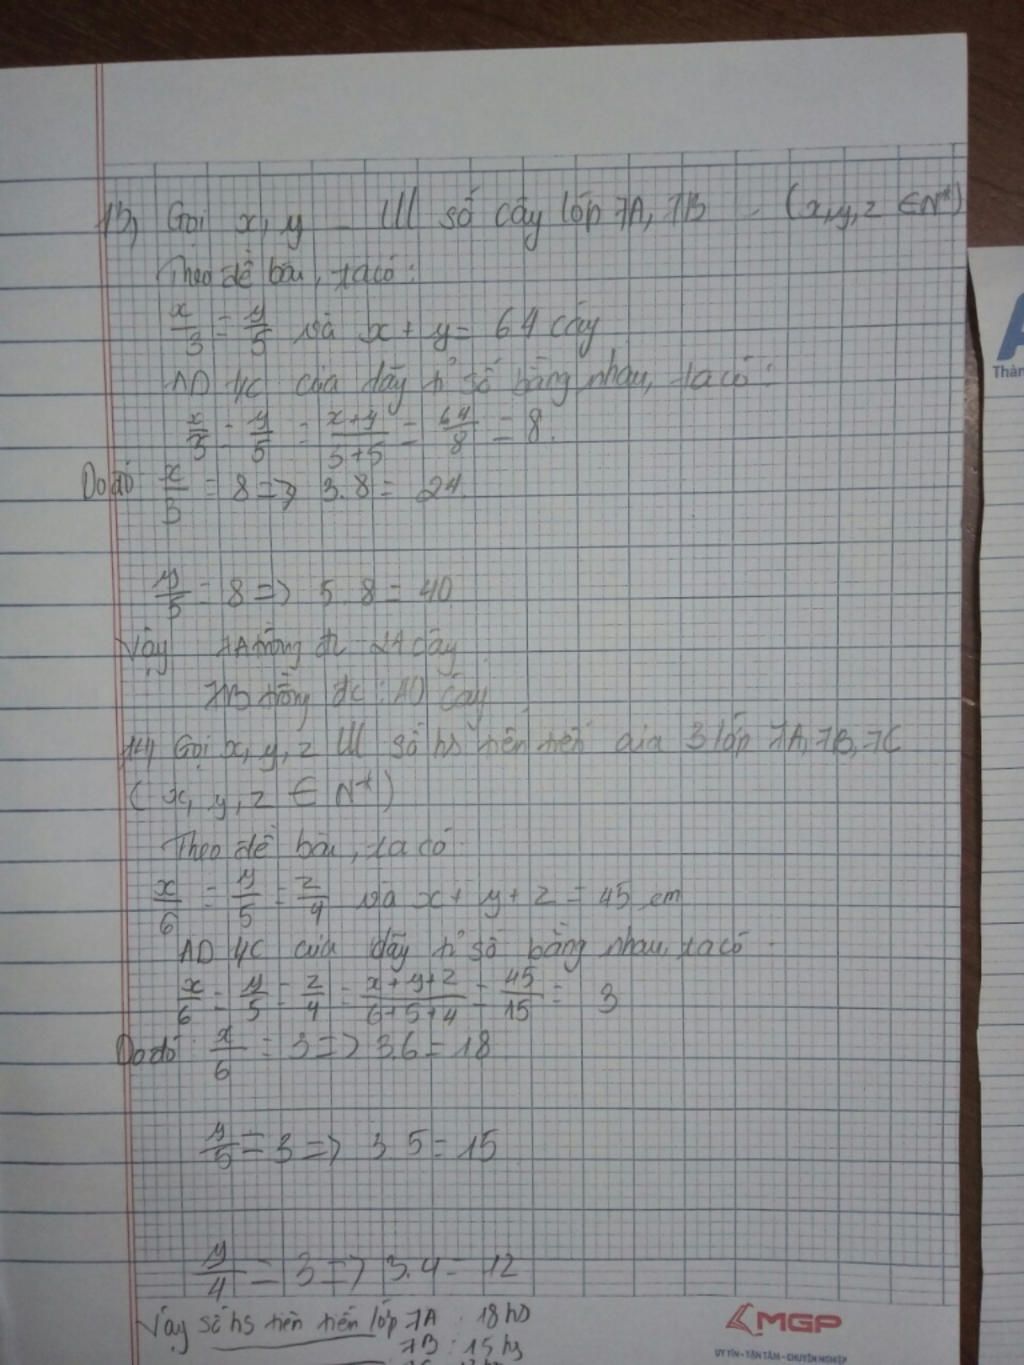 13, Gọi x, y lll số cây lớp 7A, 7B (x, y, z ∈ N*)
Theo đề bài, ta có:
x/3 = y/5 và x + y = 64 cây
AD t/c của dãy tỉ số bằng nhau, ta có:
x/3 = y/5 = x+y/3+5 = 64/8 = 8.
Do đó x/3 = 8 => 3.8 = 24
y/5 = 8 => 5.8 = 40
Vậy 7A trồng đc 24 cây
7B trồng đc: 40 cây
14, Gọi x, y, z lll số hs tiên tiến của 3 lớp 7A, 7B, 7C
(x, y, z ∈ N*)
Theo đề bài, ta có:
x/6 = y/5 = z/4 và x + y + z = 45 em
AD t/c của dãy tỉ số bằng nhau, ta có:
x/6 = y/5 = z/4 = x+y+z/6+5+4 = 45/15 = 3
Do đó x/6 = 3 => 3.6 = 18
y/5 = 3 => 3.5 = 15
y/4 = 3 => 3.4 = 12
Vậy số hs tiên tiến lớp 7A: 18 hs
7B: 15 hs
MGP
UY TÍN - TẬN TÂM - CHUYÊN NGHIỆP
Thàn